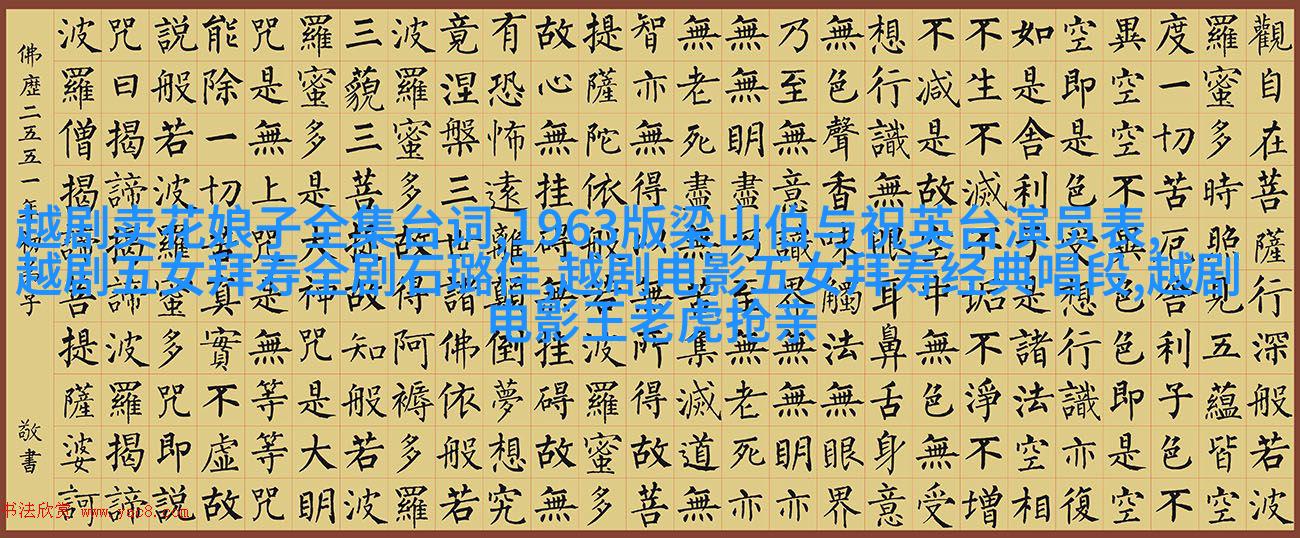 觀自在菩薩行深般若波
羅蜜多時照見五蘊皆空
度一切苦厄舍利子色不
異空空不異色色即是空
空即是色受想行識亦復
如是舍利子是諸法空相
不生不滅不垢不淨不增
不減是故空中無色無受
想行識無眼耳鼻舌身意
無色聲香味觸法無眼界
乃至無意識界無無明亦
無無明盡乃至無老死亦
無老死盡無苦集滅道無
智亦無得以無所得故菩
提薩陀依般若波羅蜜多
故心無挂碍無挂碍故無
有恐怖遠離顛倒夢想究
竟涅槃三世諸佛依般若
波羅蜜多故得阿褥多羅
三藐三菩提故知般若波
羅蜜多是大神咒是大明
咒是無上咒是無等等咒
能除一切苦真實不虛故
説般若波羅蜜多咒即説
咒曰揭諦揭諦波羅揭諦
波羅僧揭諦菩提薩婆訶
佛歷二五五一年 子 敬書
越剧卖花娘子全集台词,1963版梁山伯与祝英台演员表,
越剧五女拜寿全剧石璐佳,越剧电影五女拜寿经典唱段,越剧
电影王老虎抢亲
书法欣赏 www.yac8.com